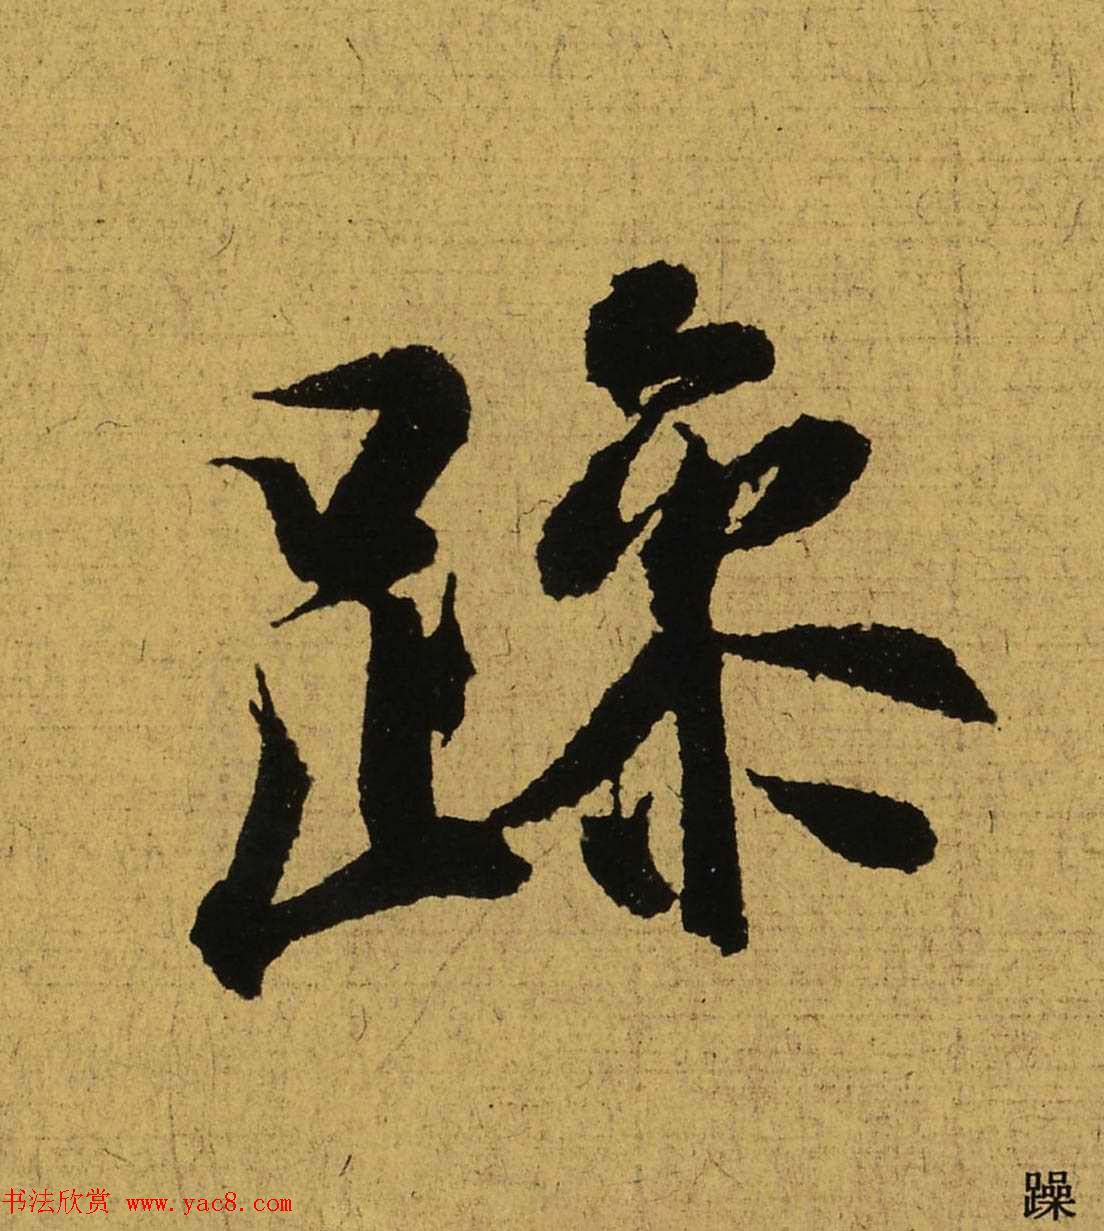 躁
书法欣赏 www.yac8.com
躁